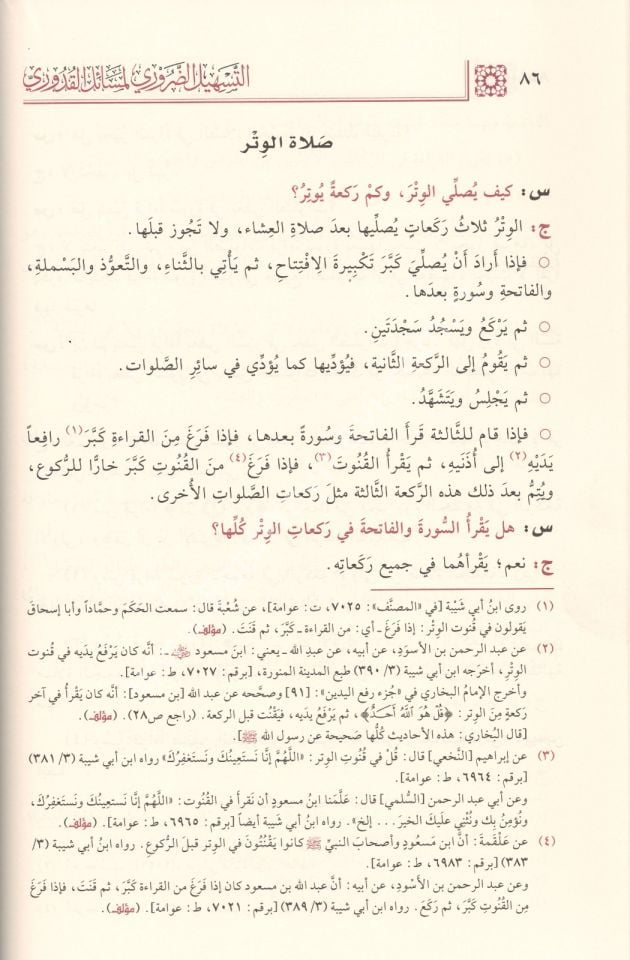 ٨٦
التسهيل الضروري لمسائل القدوري
صَلاة الوِتْر
س: كيف يُصلِّي الوِتْرَ، وكمْ ركعةً يُوتِرُ؟
ج: الوِتْرُ ثلاثُ رَكَعاتٍ يُصلِّيها بعدَ صلاةِ العِشاء، ولا تَجُوز قبلَها.
○ فإذا أرادَ أنْ يُصلِّيَ كَبَّرَ تَكْبِيرةَ الاِفْتِتاحِ، ثم يَأْتِي بالثَّناءِ، والتَّعوُّذ والبَسْملةِ،
والفاتحةِ وسُورةٍ بعدَها.
○ ثم يَرْكَعُ ويَسْجُدُ سَجْدَتَينِ.
○ ثم يَقُومُ إلى الرَّكعةِ الثَّانية، فيُؤدِّيها كما يُؤدِّي في سائِرِ الصَّلوات.
○ ثم يَجْلِسُ ويَتَشَهَّدُ.
○ فإذا قام للثَّالثة قَرأَ الفاتحةَ وسُورةً بعدها، فإذا فَرَغَ مِنَ القراءةِ كَبَّرَ(١) رافِعاً
يَدَيْهِ(٢) إلى أُذنَيهِ، ثم يَقْرأُ القُنُوتَ(٣)، فإذا فَرَغَ(٤) منَ القُنُوتِ كَبَّرَ خارًّا للرُّكوعِ،
ويُتِمُّ بعدَ ذلك هذه الرَّكعةَ الثالثةَ مثلَ رَكَعاتِ الصَّلواتِ الأُخرى.
س: هل يَقْرأُ السُّورةَ والفاتحةَ في رَكَعاتِ الوِتْرِ كُلِّها؟
ج: نعم؛ يَقْرأُهُما في جميعِ رَكَعاتِه.
(١) روى ابنُ أبي شَيْبة [في «المصنَّف»: ٧٠٢٥، ت: عوامة]، عن شُعْبةَ قال: سمعت الحَكَمَ وحمَّاداً وأبا إسحاقَ
يقولون في قُنوت الوِتْر: إذا فَرَغَ ـ أي: من القراءة ـ كَبَّرَ، ثم قَنَتَ. (مؤلف).
(٢) عن عبد الرحمن بن الأسوَدِ، عن أبيه، عن عبدِ الله ـ يعني: ابنَ مسعود ﷺ ـ: أنَّه كان يَرْفَعُ يديه في قُنوت
الوِتْرِ، أخرَجه ابن أبي شيبة (٣/ ٣٩٠) طبع المدينة المنورة، [برقم: ٧٠٢٧، ط: عوامة].
وأخرج الإمامُ البخاري في «جُزء رفع اليدين»: [٩١] وصحَّحه عن عبد الله [بن مسعود]: أنَّه كان يَقْرأُ في آخر
رَكعةٍ مِنَ الوِتر: ﴿قُلْ هُوَ ٱللَّهُ أَحَدٌ﴾، ثم يَرْفَعُ يديه، فيَقْنُت قبل الركعة. (راجع ص٢٨). (مؤلف).
[قال البُخاري: هذه الأحاديث كُلُّها صَحيحة عن رسول الله ﷺ].
(٣) عن إبراهيم [النَّخعي] قال: قُلْ في قُنُوتِ الوِتر: «اللَّهُمَّ إنَّا نَستَعِينُكَ ونَستَغفِرُكَ» رواه ابن أبي شيبة (٣/ ٣٨١)
[برقم: ٦٩٦٤، ط: عوامة].
وعن أبي عبد الرحمن [السُّلَمي] قال: علَّمَنا ابنُ مسعودٍ أن نَقرأَ في القُنُوت: «اللَّهُمَّ إنَّا نَستَعِينُكَ ونَستَغفِرُكَ،
ونُؤمِنُ بِك ونُثْنِي علَيكَ الخيرَ... إلخ». رواه ابنُ أبي شيبة أيضاً [برقم: ٦٩٦٥، ط: عوامة]. (مؤلف).
(٤) عن عَلْقمةَ: أنَّ ابنَ مَسعُودٍ وأصحابَ النبيِّ ﷺ كانوا يَقْنُتُونَ في الوِترِ قبلَ الرُّكوعِ. رواه ابنُ أبي شيبة (٣/
٣٨٣) [برقم: ٦٩٨٣، ط: عوامة].
وعن عبد الرحمن بن الأسْود، عن أبيه: أنَّ عبدَ الله بن مسعود كان إذا فَرَغَ من القراءة كَبَّرَ، ثم قَنَتَ، فإذا فَرَغَ
مِنَ القُنوتِ كَبَّرَ، ثم رَكَعَ. رواه ابن أبي شيبة (٣/ ٣٨٩) [برقم: ٧٠٢١، ط: عوامة]. (مؤلف).